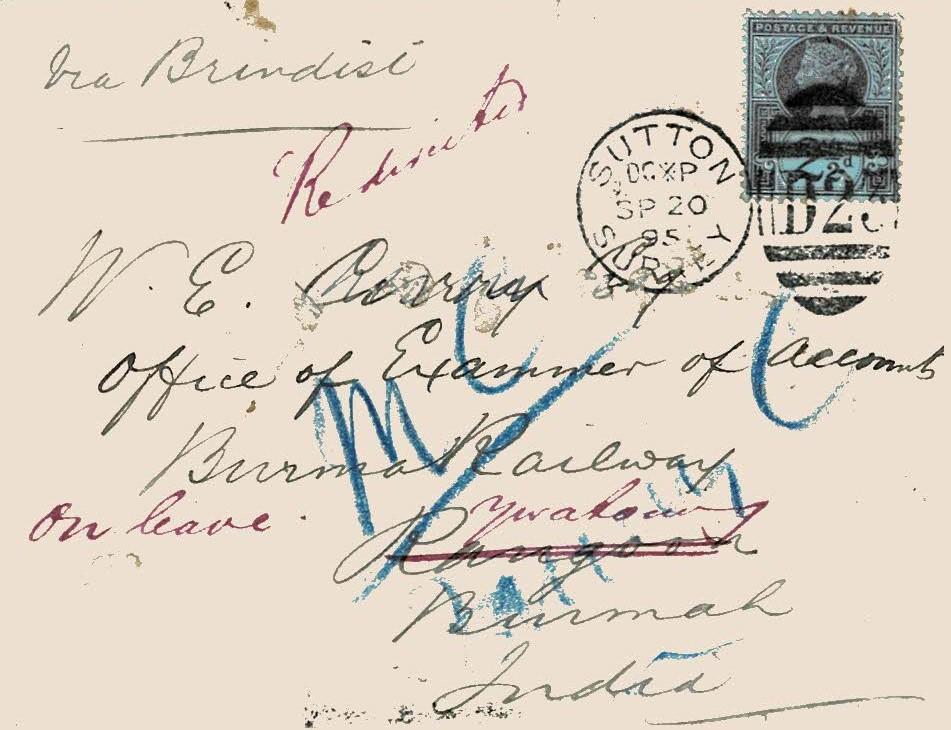 Via Brindisi
Redirected
POSTAGE & REVENUE
2½d
SUTTON
SP 20
95
SURREY
D2
W. E.
Office of Examiner of Accounts
Burma Railway
On leave
Rangoon
Burmah
India